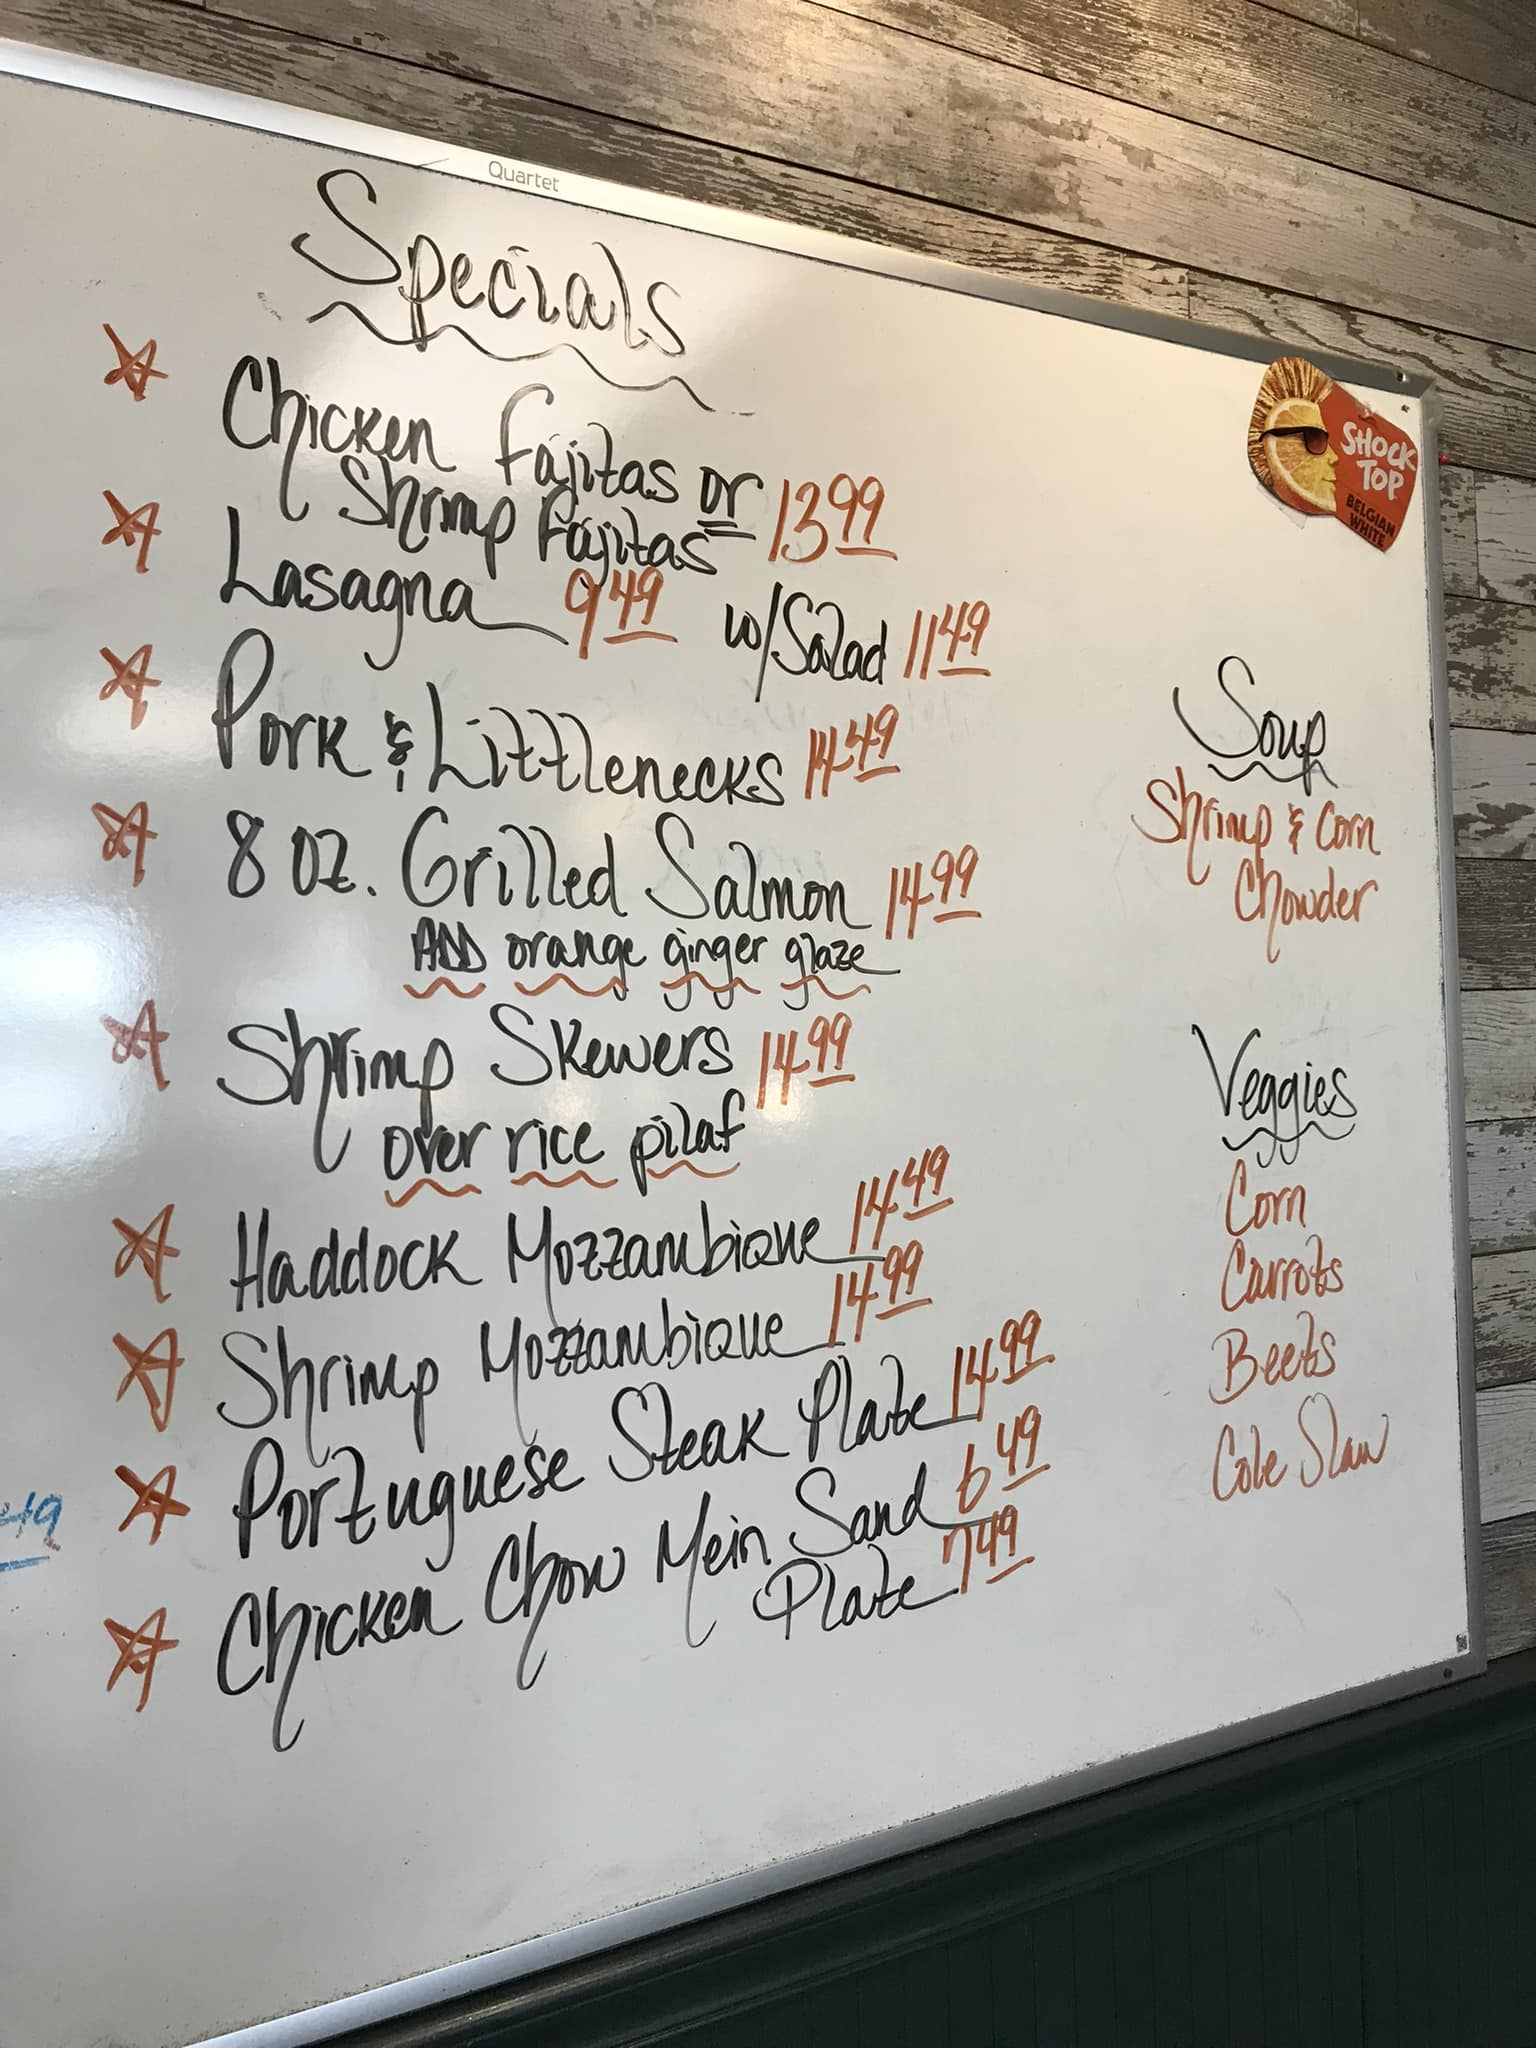 Quartet
Specials
Chicken Fajitas or
Shrimp Fajitas 13 99
Lasagna 9 49 w/Salad 11 49
Pork & Littlenecks 14 49
8 oz. Grilled Salmon 14 99
ADD orange ginger glaze
Shrimp Skewers 14 99
over rice pilaf
Haddock Mozzambique 14 49
Shrimp Mozzambique 14 99
Portuguese Steak Plate 14 99
Chicken Chow Mein Sand 6 49
Plate 7 49
49
SHOCK
TOP
BELGIAN
WHITE
Soup
Shrimp & Corn
Chowder
Veggies
Corn
Carrots
Beets
Cole Slaw